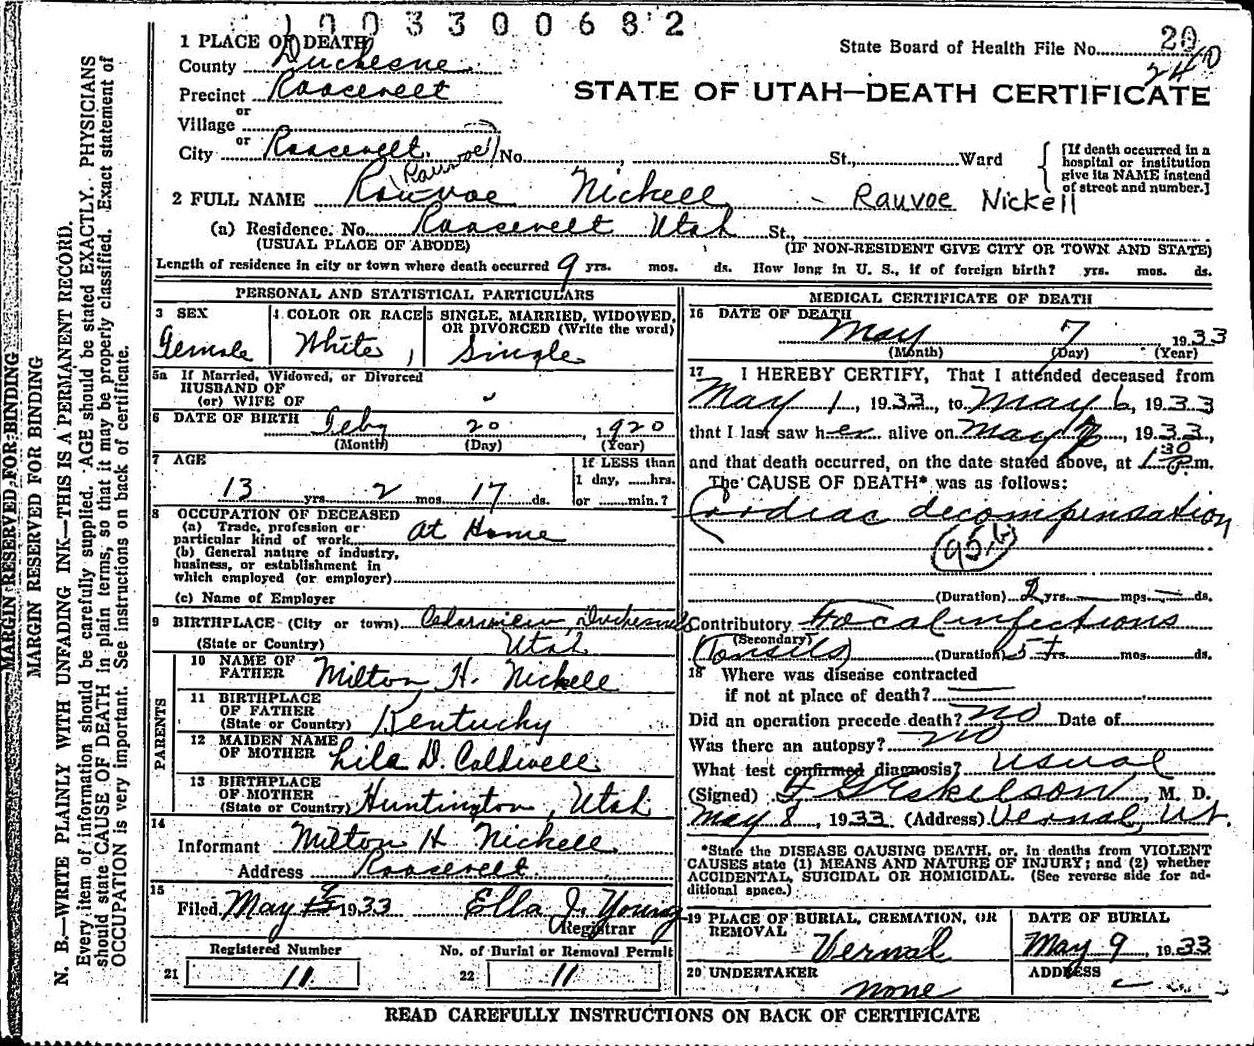 1003300682
1 PLACE OF DEATH
State Board of Health File No. 20
County Duchesne
240
Precinct Roosevelt
STATE OF UTAH—DEATH CERTIFICATE
or
Village
or
City Roosevelt No. , St., Ward
[If death occurred in a hospital or institution give its NAME instead of street and number.]
Rauvoe
2 FULL NAME Rouvoe Nickell - Rauvoe Nickell
(a) Residence. No. Roosevelt Utah St.,
(USUAL PLACE OF ABODE) (IF NON-RESIDENT GIVE CITY OR TOWN AND STATE)
Length of residence in city or town where death occurred 9 yrs. mos. ds. How long in U. S., if of foreign birth? yrs. mos. ds.
PERSONAL AND STATISTICAL PARTICULARS
3 SEX 4 COLOR OR RACE 5 SINGLE, MARRIED, WIDOWED,
OR DIVORCED (Write the word)
Female White Single
5a If Married, Widowed, or Divorced
HUSBAND OF
(or) WIFE OF
6 DATE OF BIRTH Feby 20, 1920
(Month) (Day) (Year)
7 AGE If LESS than
1 day, hrs.
13 yrs. 2 mos. 17 ds. or min.?
8 OCCUPATION OF DECEASED
(a) Trade, profession or
particular kind of work At Home
(b) General nature of industry,
business, or establishment in
which employed (or employer)
(c) Name of Employer
9 BIRTHPLACE (City or town) Cedarview, Duchesne
(State or Country) Utah
PARENTS
10 NAME OF
FATHER Milton H. Nickell
11 BIRTHPLACE
OF FATHER
(State or Country) Kentucky
12 MAIDEN NAME
OF MOTHER Lila D. Caldwell
13 BIRTHPLACE
OF MOTHER
(State or Country) Huntington, Utah
14
Informant Milton H Nickell
Address Roosevelt
15
Filed May 1933 Ella J. Young
Registrar
Registered Number No. of Burial or Removal Permit
21 11 22 11
MEDICAL CERTIFICATE OF DEATH
16 DATE OF DEATH
May 7 1933
(Month) (Day) (Year)
17 I HEREBY CERTIFY, That I attended deceased from
May 1, 1933, to May 6, 1933
that I last saw her alive on May , 1933,
and that death occurred, on the date stated above, at 1:30 P.m.
The CAUSE OF DEATH* was as follows:
Cardiac decompensation
95-b
(Duration) 2 yrs. — mos. — ds.
Contributory Focal infections
(Secondary)
(Tonsils) (Duration) 5+ yrs. mos. ds.
18 Where was disease contracted
if not at place of death?
Did an operation precede death? no Date of
Was there an autopsy? no
What test confirmed diagnosis? usual
(Signed) F G Eskelson, M. D.
May 8, 1933 (Address) Vernal, Ut.
*State the DISEASE CAUSING DEATH, or, in deaths from VIOLENT
CAUSES state (1) MEANS AND NATURE OF INJURY; and (2) whether
ACCIDENTAL, SUICIDAL OR HOMICIDAL. (See reverse side for ad-
ditional space.)
19 PLACE OF BURIAL, CREMATION, OR
REMOVAL
Vernal
DATE OF BURIAL
May 9, 1933
20 UNDERTAKER
none
ADDRESS
READ CAREFULLY INSTRUCTIONS ON BACK OF CERTIFICATE
MARGIN RESERVED FOR BINDING
MARGIN RESERVED FOR BINDING
N. B.—WRITE PLAINLY WITH UNFADING INK—THIS IS A PERMANENT RECORD.
Every item of information should be carefully supplied. AGE should be stated EXACTLY. PHYSICIANS
should state CAUSE OF DEATH in plain terms, so that it may be properly classified. Exact statement of
OCCUPATION is very important. See instructions on back of certificate.